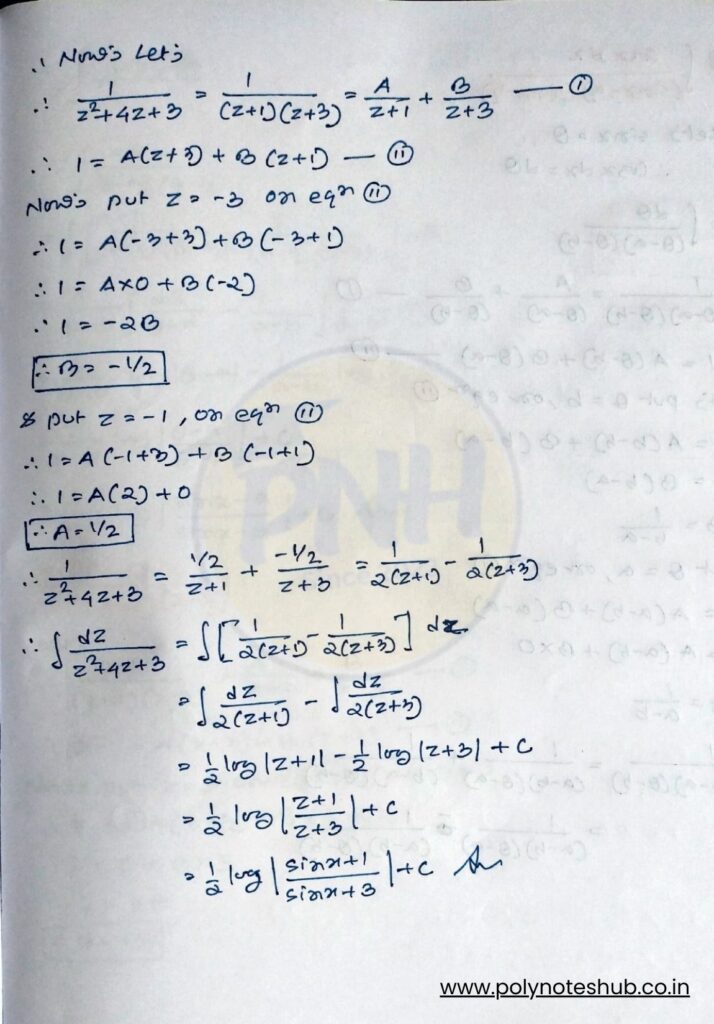 ∴ Now, Let,
∴ 1/(z²+4z+3) = 1/((z+1)(z+3)) = A/(z+1) + B/(z+3) — (i)
∴ 1 = A(z+3) + B(z+1) — (ii)
Now, put z = -3 on eqn (ii)
∴ 1 = A(-3+3) + B(-3+1)
∴ 1 = A×0 + B(-2)
∴ 1 = -2B
∴ B = -1/2
& put z = -1, on eqn (ii)
∴ 1 = A(-1+3) + B(-1+1)
∴ 1 = A(2) + 0
∴ A = 1/2
∴ 1/(z²+4z+3) = (1/2)/(z+1) + (-1/2)/(z+3) = 1/(2(z+1)) - 1/(2(z+3))
∴ ∫ dz/(z²+4z+3) = ∫[1/(2(z+1)) - 1/(2(z+3))] dz
= ∫ dz/(2(z+1)) - ∫ dz/(2(z+3))
= 1/2 log|z+1| - 1/2 log|z+3| + C
= 1/2 log|(z+1)/(z+3)| + C
= 1/2 log|(sinx+1)/(sinx+3)| + C
PNH
www.polynoteshub.co.in